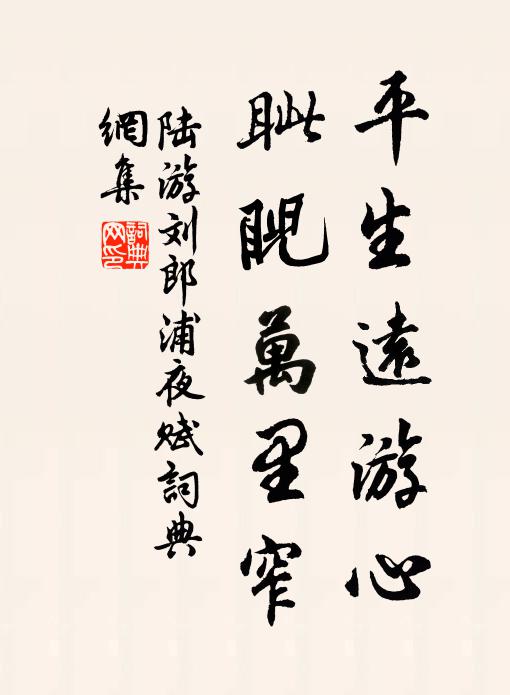 平生遠游心
眦睨萬里窄
陆游刘郎浦夜赋詞典
網集
詞典
网印